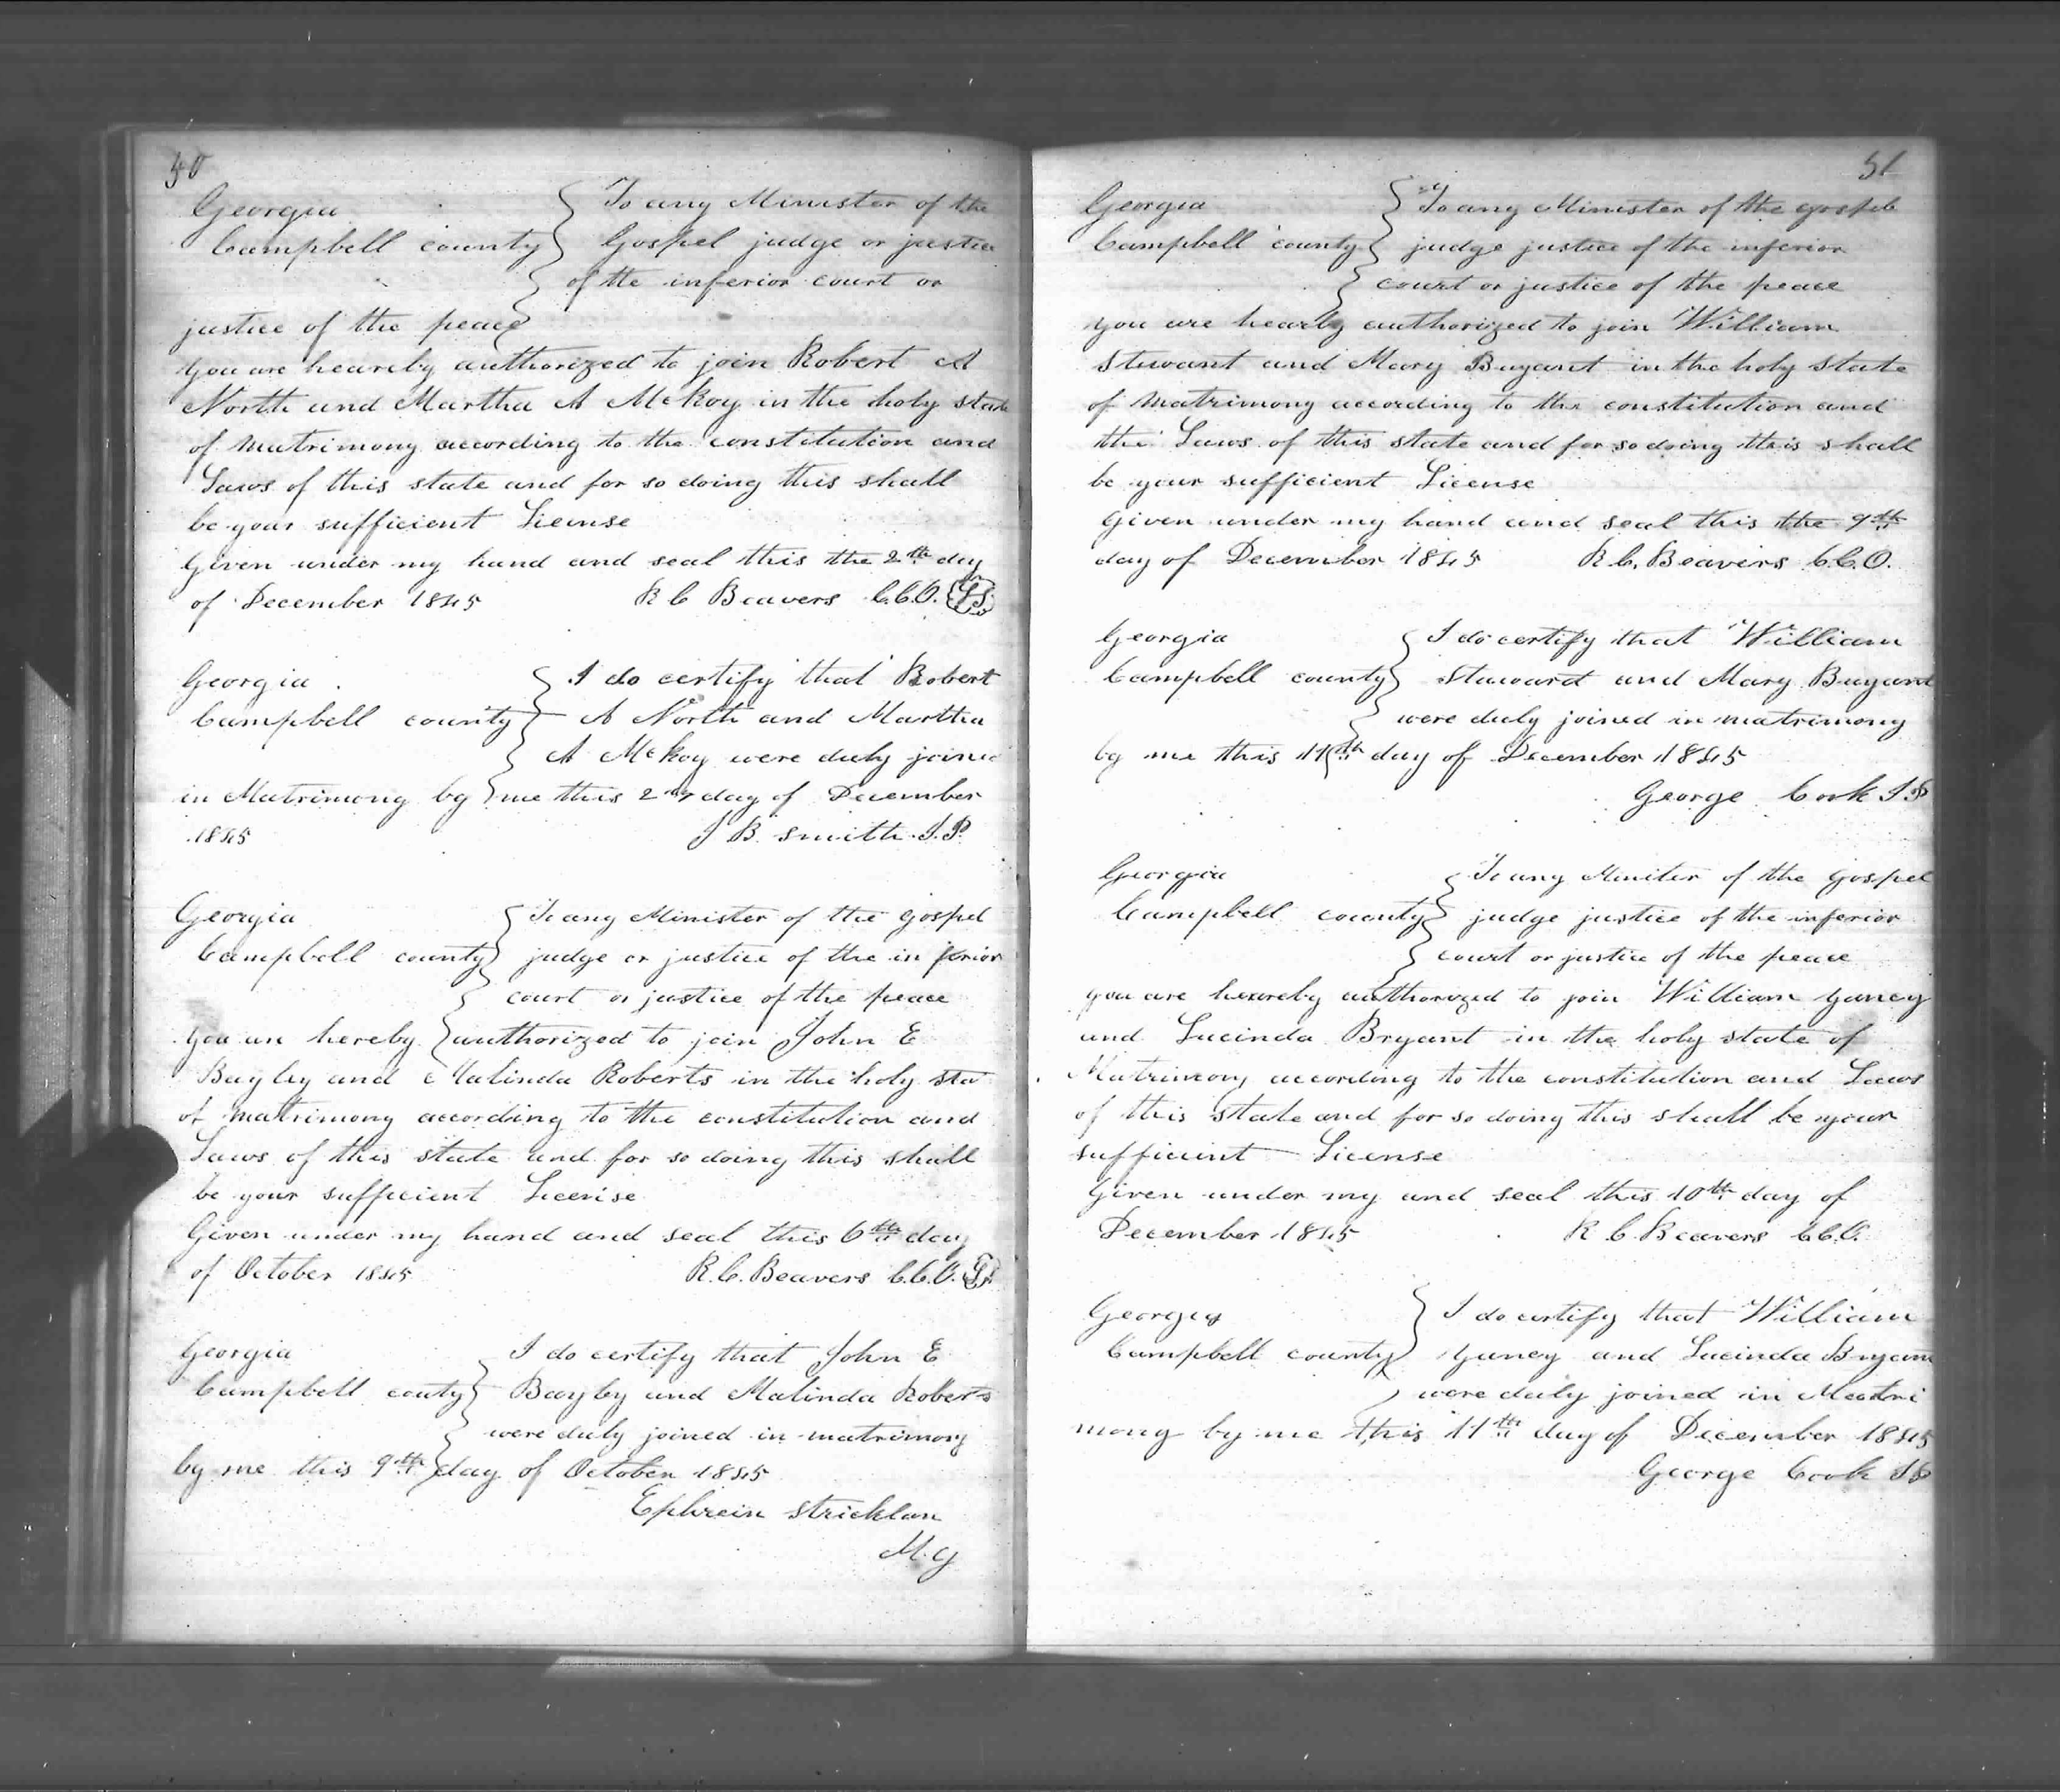 50
Georgia
Campbell county
To any Minister of the
Gospel judge or justice
of the inferior court or
justice of the peace
you are heareby authorized to join Robert A
North and Martha A McKoy in the holy state
of matrimony according to the constitution and
Laws of this state and for so doing this shall
be your sufficient License
Given under my hand and seal this the 2th day
of December 1845 R C Beavers C.C.O. LS
Georgia
Campbell county
I do certify that Robert
A North and Martha
A McKoy were duly joined
in Matrimony by me this 2nd day of December
1845 J B smith J.P.
Georgia
Campbell county
To any Minister of the gospel
judge or justice of the in ferior
court or justice of the peace
you are hereby authorized to join John E
Bayley and Malinda Roberts in the holy sta
of matrimony according to the constitution and
Laws of this state and for so doing this shall
be your sufficient License
Given under my hand and seal this 6th day
of October 1845 R.C. Beavers C.C.O. LS
Georgia
Campbell couty
I do certify that John E
Bayley and Malinda Roberts
were duly joined in matrimony
by me this 9th day of October 1845
Ephrein stricklan
M.G
51
Georgia
Campbell county
To any Minister of the gospel
judge justice of the inferior
court or justice of the peace
you are hearby authorized to join William
Stewant and Mary Bryant in the holy state
of matrimony according to the constitution and
the Laws of this state and for so doing this shall
be your sufficient License
Given under my hand and seal this the 9th
day of December 1845 R.C. Beavers C.C.O.
Georgia
Campbell county
I do certify that William
Staward and Mary Bryant
were duly joined in matrimony
by me this 11th day of December 1845
George Cook J P
Georgia
Campbell county
To any Miniter of the gospel
judge justice of the inferior
court or justice of the peace
you are heareby authorized to join William Yancy
and Lucinda Bryant in the holy state of
Matrimony according to the constitution and Laws
of this state and for so doing this shall be your
sufficient License
Given under my and seal this 10th day of
December 1845 R C. Beavers C.C.O.
Georgia
Campbell county
I do certify that William
Yancy and Lucinda Bryan
were duly joined in Matri
mony by me this 11th day of December 1845
George Cook J P